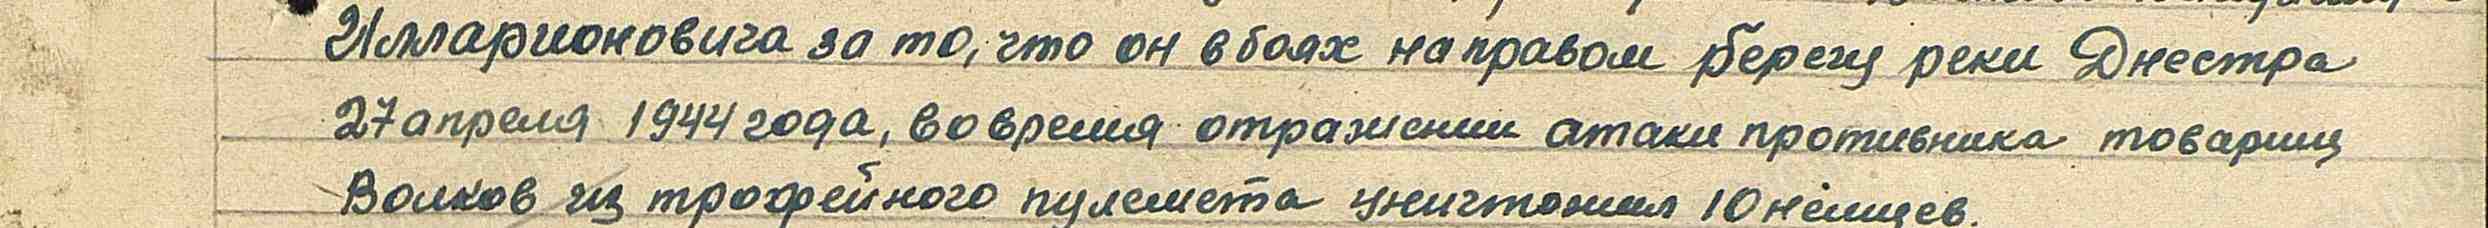 Илларионовича за то, что он в боях на правом берегу реки Днестра
27 апреля 1944 года, во время отражении атаки противника товарищ
Волков из трофейного пулемета уничтожил 10 немцев.